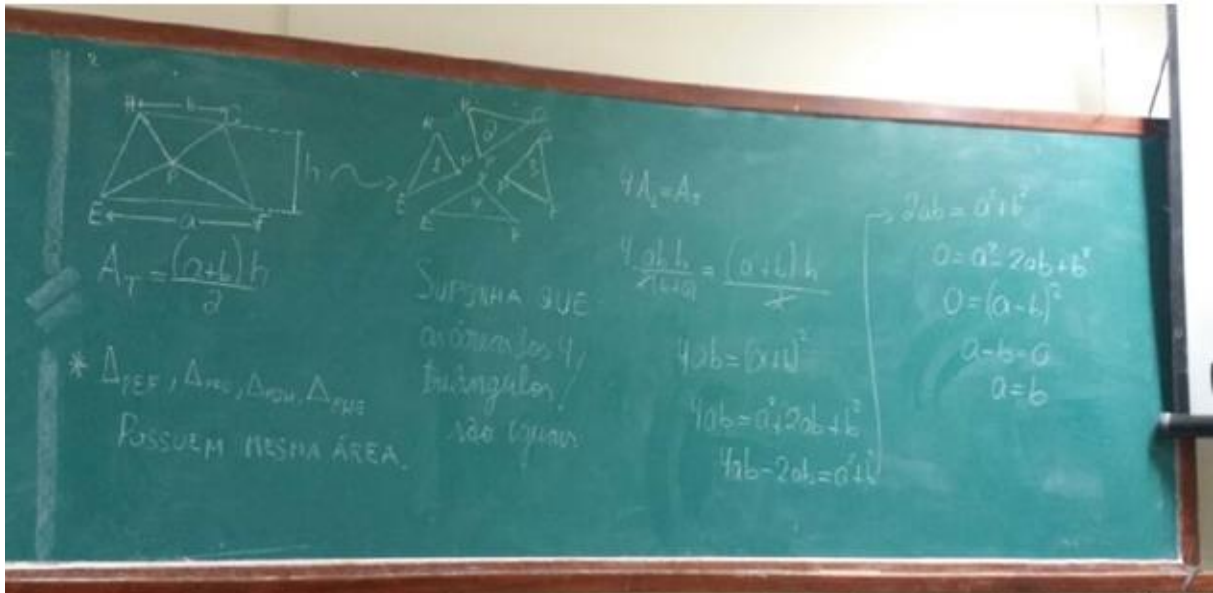 H b G
h
P
E a F
A_T = (a+b) h / 2
* Δ_PEF, Δ_PFG, Δ_PGH, Δ_PHE
POSSUEM MESMA ÁREA.
H G
H 2 G
1 P P 3
E P
4
E F F
SUPONHA QUE
as áreas dos 4
triângulos
são iguais.
4A_1 = A_T
4 abh / 2(b+a) = (a+b) h / 2
4ab = (a+b)²
4ab = a² + 2ab + b²
4ab - 2ab = a² + b²
2ab = a² + b²
0 = a² - 2ab + b²
0 = (a-b)²
a - b = 0
a = b